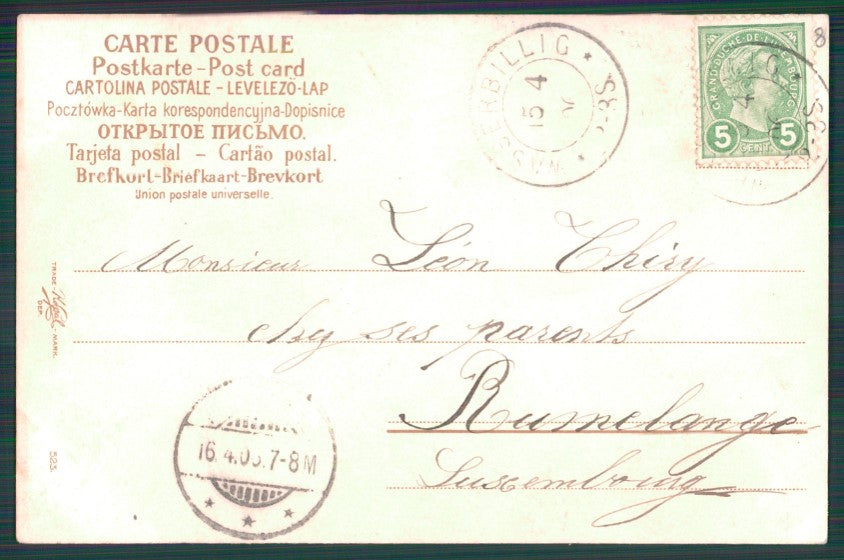 CARTE POSTALE
Postkarte – Post card
CARTOLINA POSTALE – LEVELEZŐ-LAP
Pocztówka-Karta korespondencyjna-Dopisnice
ОТКРЫТОЕ ПИСЬМО.
Tarjeta postal – Cartão postal.
Brefkort-Briefkaart-Brevkort
Union postale universelle.
WASSERBILLIG
15 4
GRAND-DUCHÉ DE LUXEMBOURG
5 5
CENT.
8
Monsieur Léon Thiry
chez ses parents
Rumelange
Luxembourg
TRADE MARK.
DEP.
523.
16.4.05.7-8M